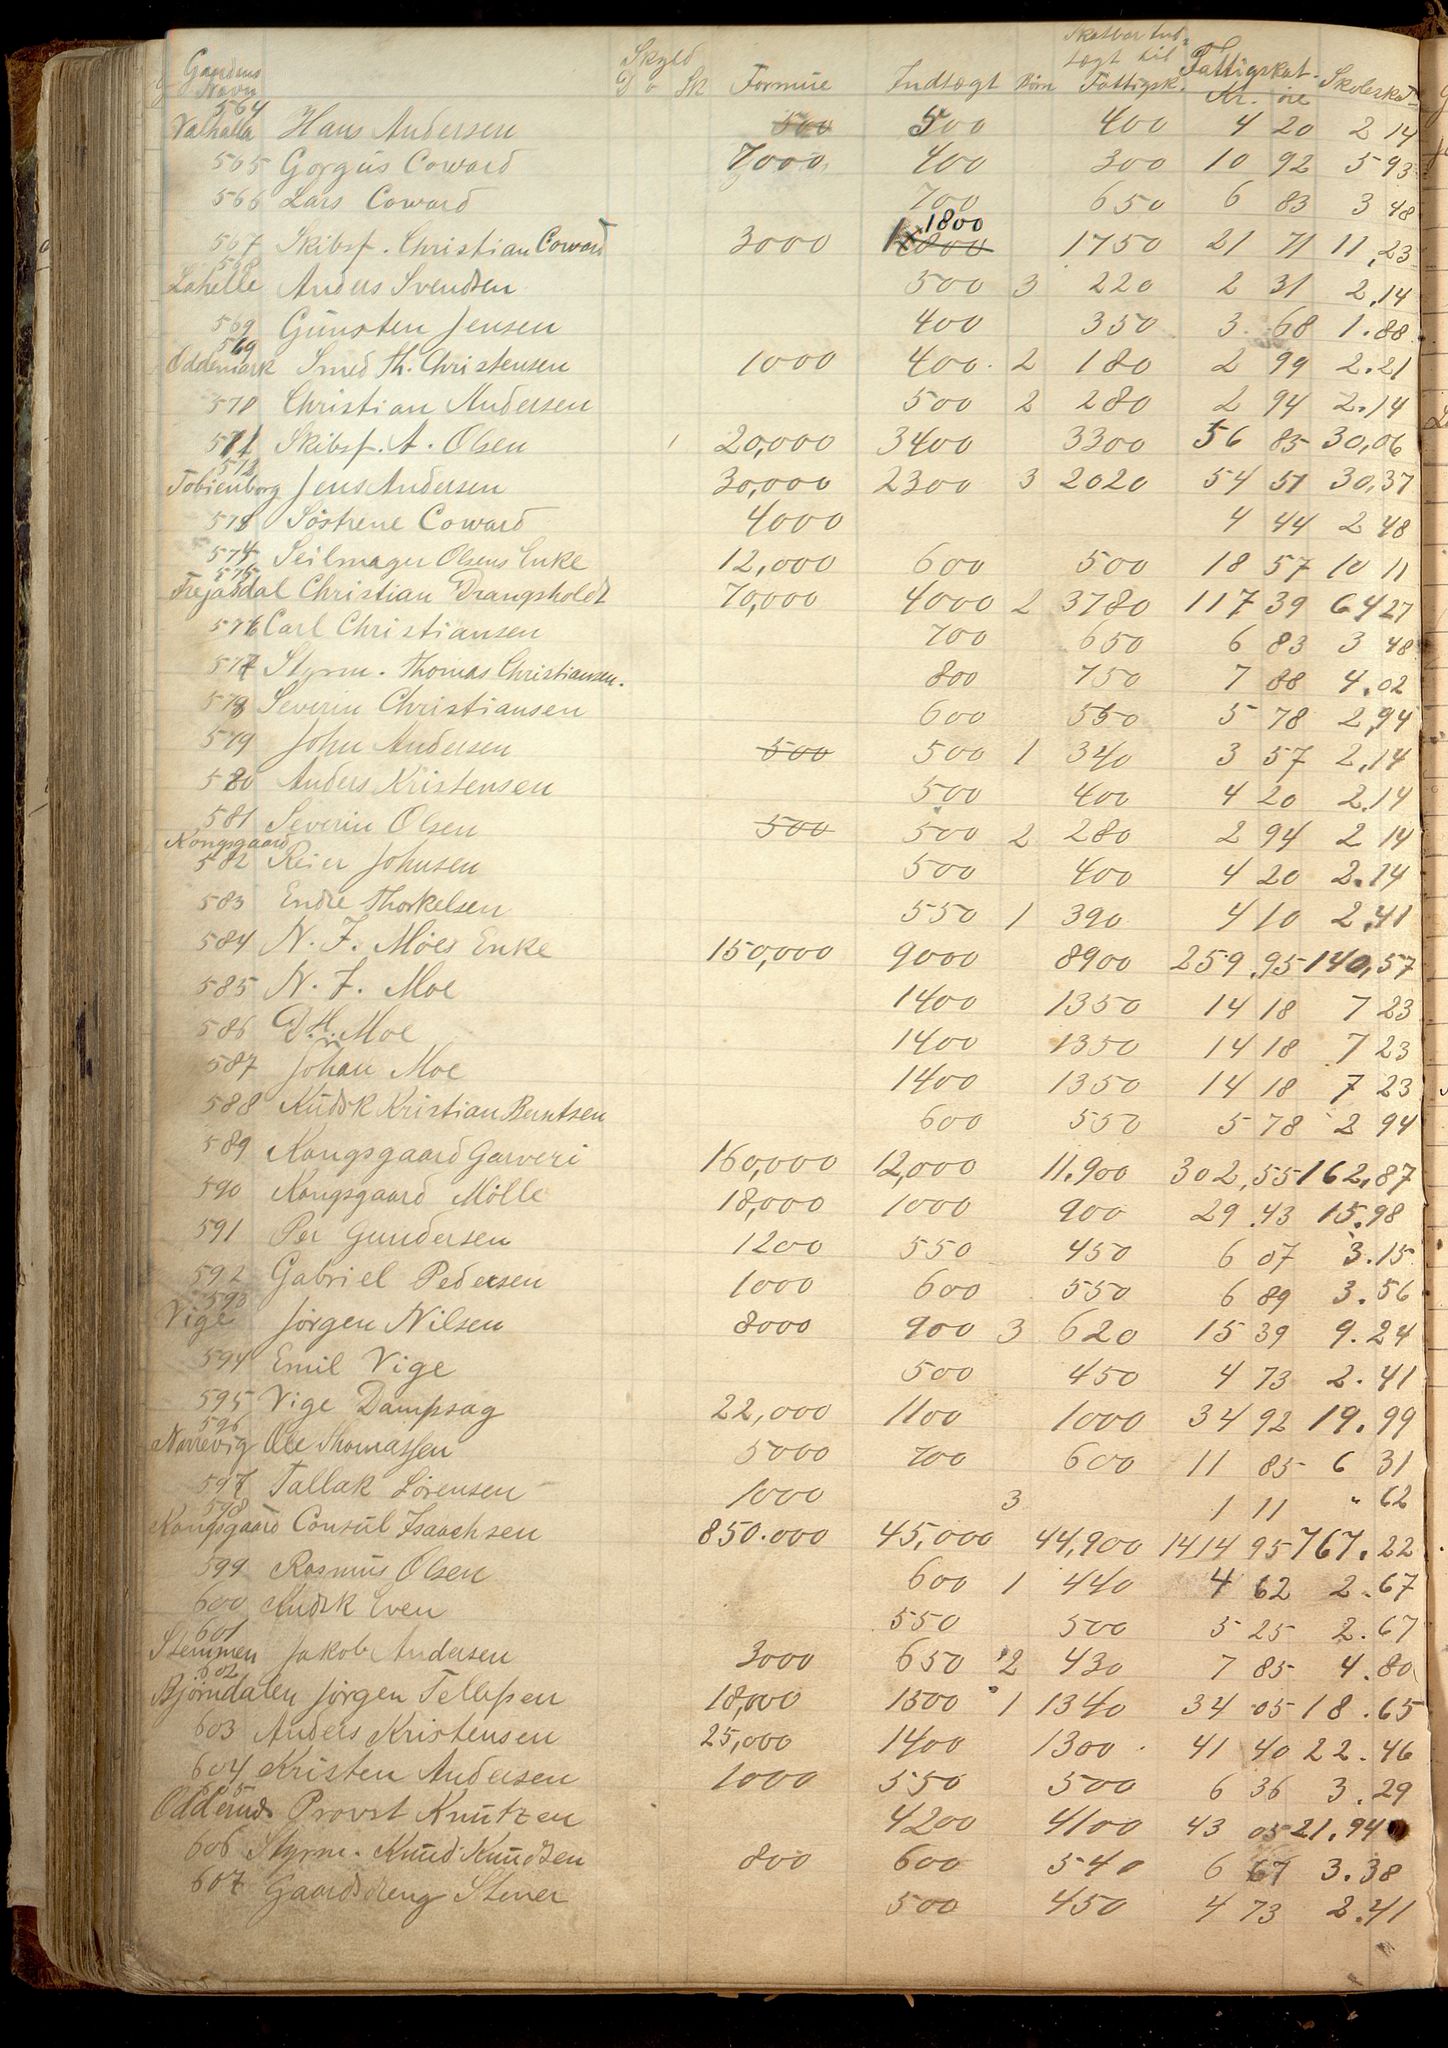 Gaardens Navn Skyld D o Sk Formue Indtægt Börn Skatbar Ind-tægt til Fattigsk. Fattigskat. Kr. öre Skoleskat
564 Valhalla Hans Andersen 500 500 400 4 20 2 14
565 Gorgus Coward 7000 400 300 10 92 5 93
566 Lars Coward 700 650 6 83 3 48
567 Skibsf. Christian Coward 3000 1800 1750 21 71 11,23
568 Lahelle Anders Svendsen 500 3 220 2 31 2,14
569 Gunsten Jensen 400 350 3 68 1.88
569 Oddemark Smed Th. Christensen 1000 400. 2 180 2 99 2.21
570 Christian Andersen 500 2 280 2 94 2.14
571 Skibsf. A. Olsen 20,000 3400 3300 56 85 30,06
572 Tobienborg Jens Andersen 30,000 2300 3 2020 54 51 30,37
573 Söstrene Coward 4000 4 44 2 48
574 Seilmager Olsens Enke 12,000 600 500 18 57 10 11
575 Frejasdal Christian Drangsholdt 70,000 4000 2 3780 117 39 64 27
576 Carl Christiansen 700 650 6 83 3 48
577 Styrm. Thomas Christiansen. 800 750 7 88 4.02
578 Severin Christiansen 600 550 5 78 2,94
579 John Andersen 500 500 1 340 3 57 2,14
580 Anders Kristensen 500 400 4 20 2.14
581 Severin Olsen 500 500 2 280 2 94 2 14
Kongsgaard 582 Reier Johnsen 500 400 4 20 2.14
583 Endre Thorkelsen 550 1 390 4 10 2,41
584 N. F. Möes Enke 150,000 9000 8900 259.95 140,57
585 N. F. Moe 1400 1350 14 18 7 23
586 D. H. Moe 1400 1350 14 18 7 23
587 Johan Moe 1400 1350 14 18 7 23
588 Kudsk Kristian Berntsen 600 550 5 78 2 94
589 Kongsgaard Garveri 160,000 12,000 11.900 302,55 162,87
590 Kongsgaard Mölle 18,000 1000 900 29.43 15.98
591 Per Gundersen 1200 550 450 6 07 3.15
592 Gabriel Pedersen 1000 600 550 6 89 3.56
593 Vige Jörgen Nilsen 8000 900 3 620 15 39 9.24
594 Emil Vige 500 450 4 73 2.41
595 Vige Dampsag 22,000 1100 1000 34 92 19.99
596 Narrevig Ole Thomassen 5000 700 600 11 85 6 31
597 Tallak Sörensen 1000 3 1 11 " 62
598 Kongsgaard Consul Isaachsen 850.000 45,000 44,900 1414 95 767.22
599 Rasmus Olsen 600 1 440 4 62 2.67
600 Kudsk Even 550 500 5 25 2.67
601 Stemmen Jakob Andersen 3000 650 2 430 7 85 4.80
602 Björndalen Jörgen Tellefsen 18,000 1500 1 1340 34 05 18.65
603 Anders Kristensen 25,000 1400 1300. 41 40 22.46
604 Kristen Andersen 1000 550 500 6 36 3.29
605 Oddernæs Provst Knutzen 4200 4100 43 05 21.94
606 Styrm. Knud Knudsen 800 600 540 6 67 3.38
607 Gaardsdreng Stener 500 450 4 73 2.41